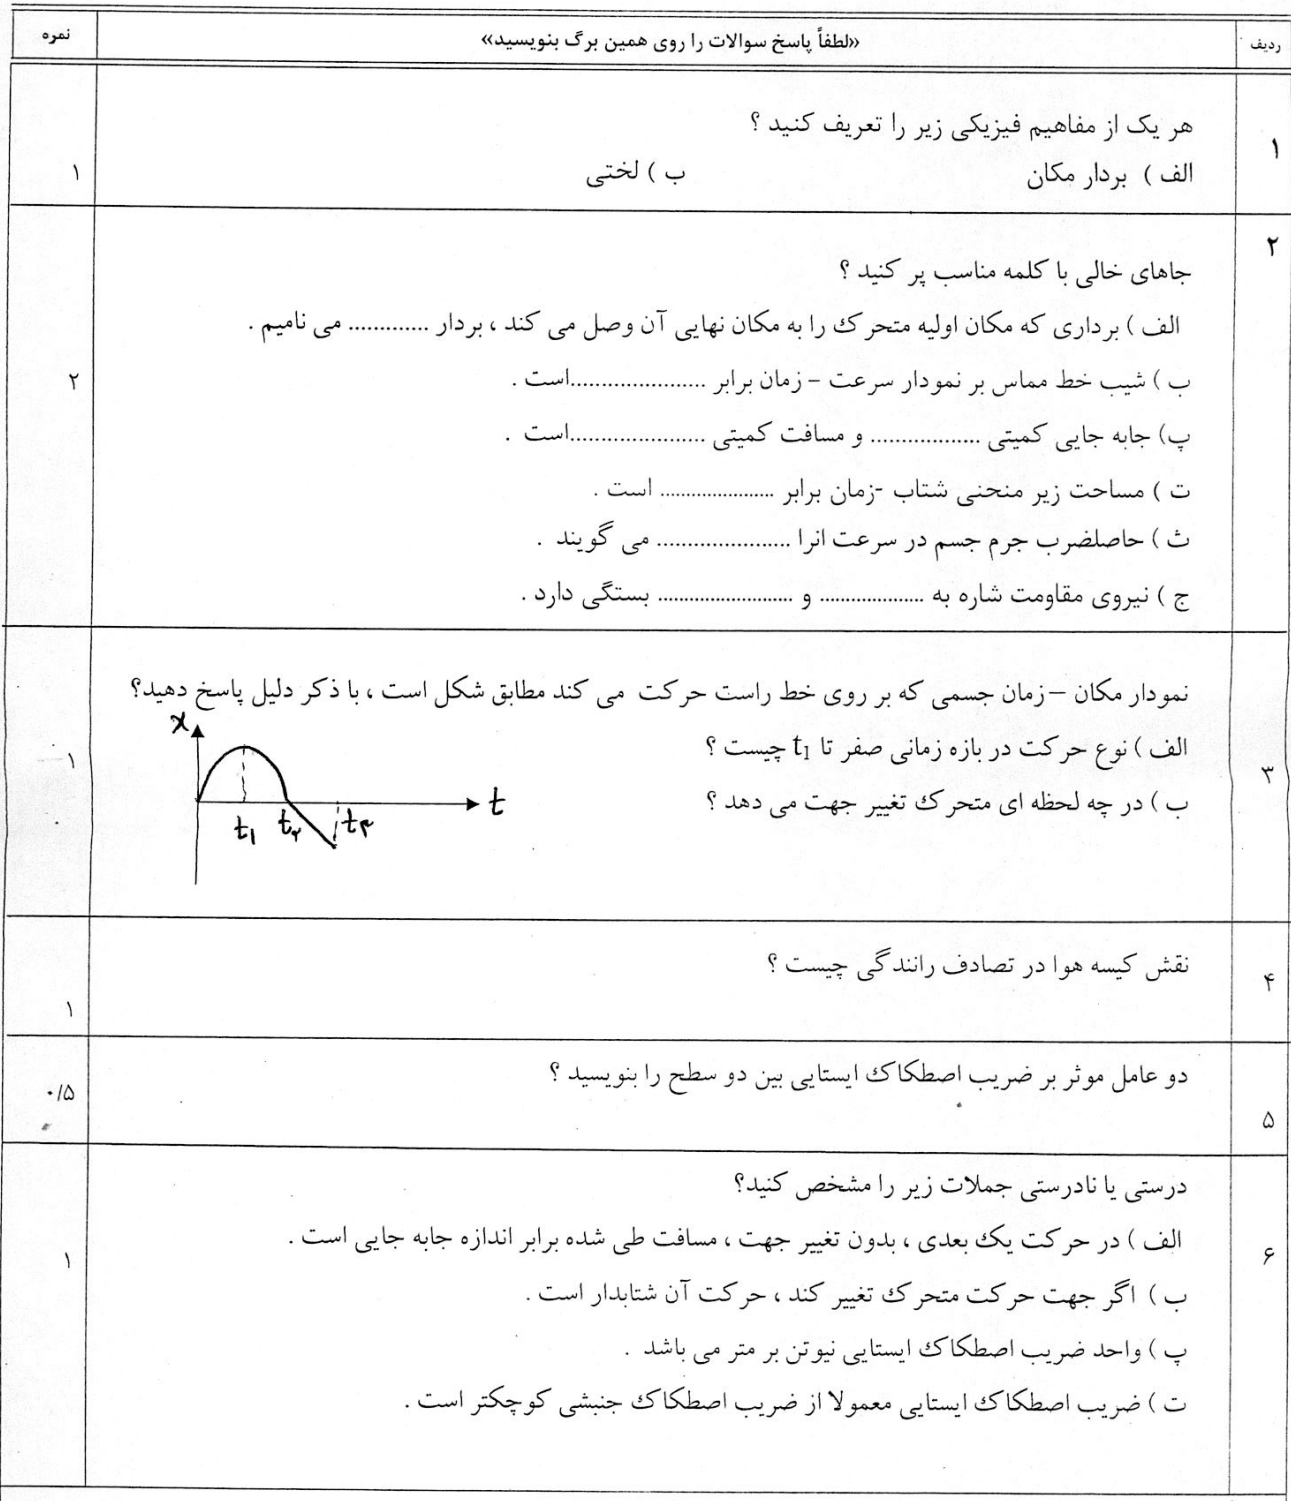 ردیف
«لطفاً پاسخ سوالات را روی همین برگ بنویسید»
نمره
۱
هر یک از مفاهیم فیزیکی زیر را تعریف کنید ؟
الف ) بردار مکان ب ) لختی
۱
۲
جاهای خالی با کلمه مناسب پر کنید ؟
الف ) برداری که مکان اولیه متحرک را به مکان نهایی آن وصل می کند ، بردار ............. می نامیم .
ب ) شیب خط مماس بر نمودار سرعت – زمان برابر ......................است .
۲
پ) جابه جایی کمیتی .................. و مسافت کمیتی ......................است .
ت ) مساحت زیر منحنی شتاب -زمان برابر ...................... است .
ث ) حاصلضرب جرم جسم در سرعت انرا ...................... می گویند .
ج ) نیروی مقاومت شاره به .................... و .......................... بستگی دارد .
نمودار مکان – زمان جسمی که بر روی خط راست حرکت می کند مطابق شکل است ، با ذکر دلیل پاسخ دهید؟
۳
الف ) نوع حرکت در بازه زمانی صفر تا t1 چیست ؟
۱
ب ) در چه لحظه ای متحرک تغییر جهت می دهد ؟
x
t
t۱ t۲ t۳
۴
نقش کیسه هوا در تصادف رانندگی چیست ؟
۱
دو عامل موثر بر ضریب اصطکاک ایستایی بین دو سطح را بنویسید ؟
۰/۵
۵
درستی یا نادرستی جملات زیر را مشخص کنید؟
۶
الف ) در حرکت یک بعدی ، بدون تغییر جهت ، مسافت طی شده برابر اندازه جابه جایی است .
۱
ب ) اگر جهت حرکت متحرک تغییر کند ، حرکت آن شتابدار است .
پ ) واحد ضریب اصطکاک ایستایی نیوتن بر متر می باشد .
ت ) ضریب اصطکاک ایستایی معمولا از ضریب اصطکاک جنبشی کوچکتر است .